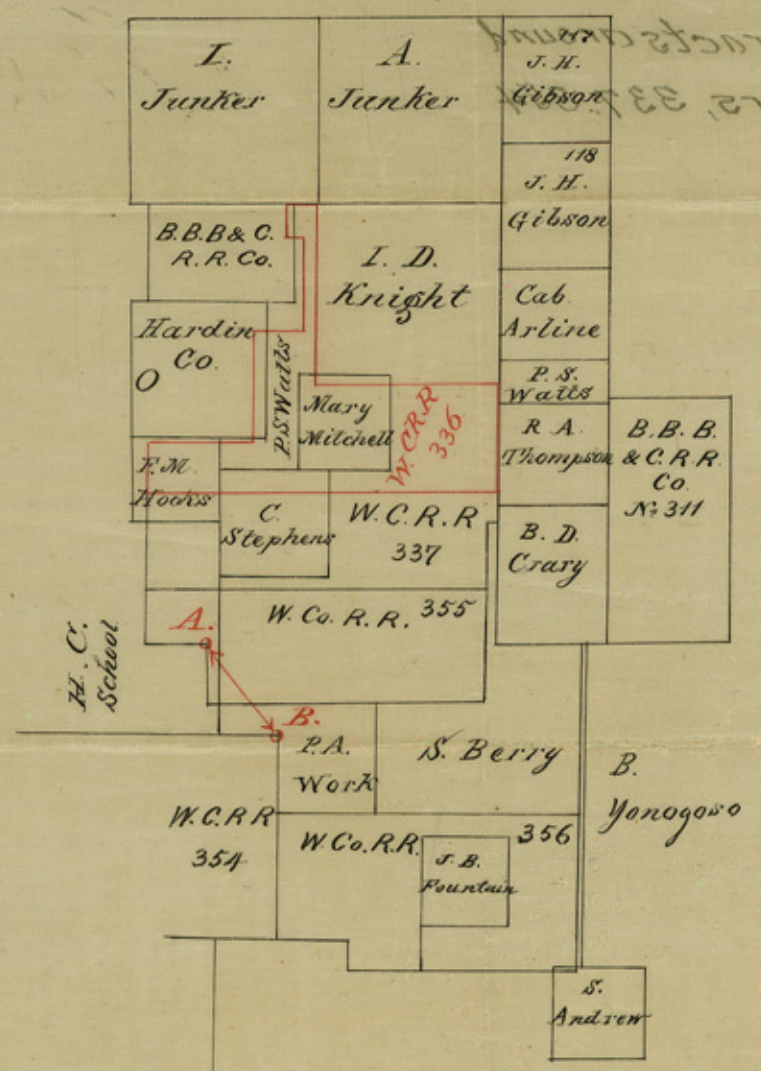 I.
Junker
A.
Junker
J. H.
Gibson
118
J. H.
Gibson
B.B.B & C.
R. R. Co.
I. D.
Knight
Cab
Arline
Hardin
Co.
O
P.S Watts
Mary
Mitchell
W. C R.R
336
P. S.
Watts
R A
Thompson
B. B. B.
& C. R. R.
Co.
No 311
F. M.
Hooks
C.
Stephens
W. C. R. R
337
B. D.
Crary
H. C.
School
W. Co. R. R. 355
A.
B.
P. A.
Work
S. Berry
B.
Yonogoso
W. C. R R
354
W. Co. R. R. 356
J. B.
Fountain
S.
Andrew